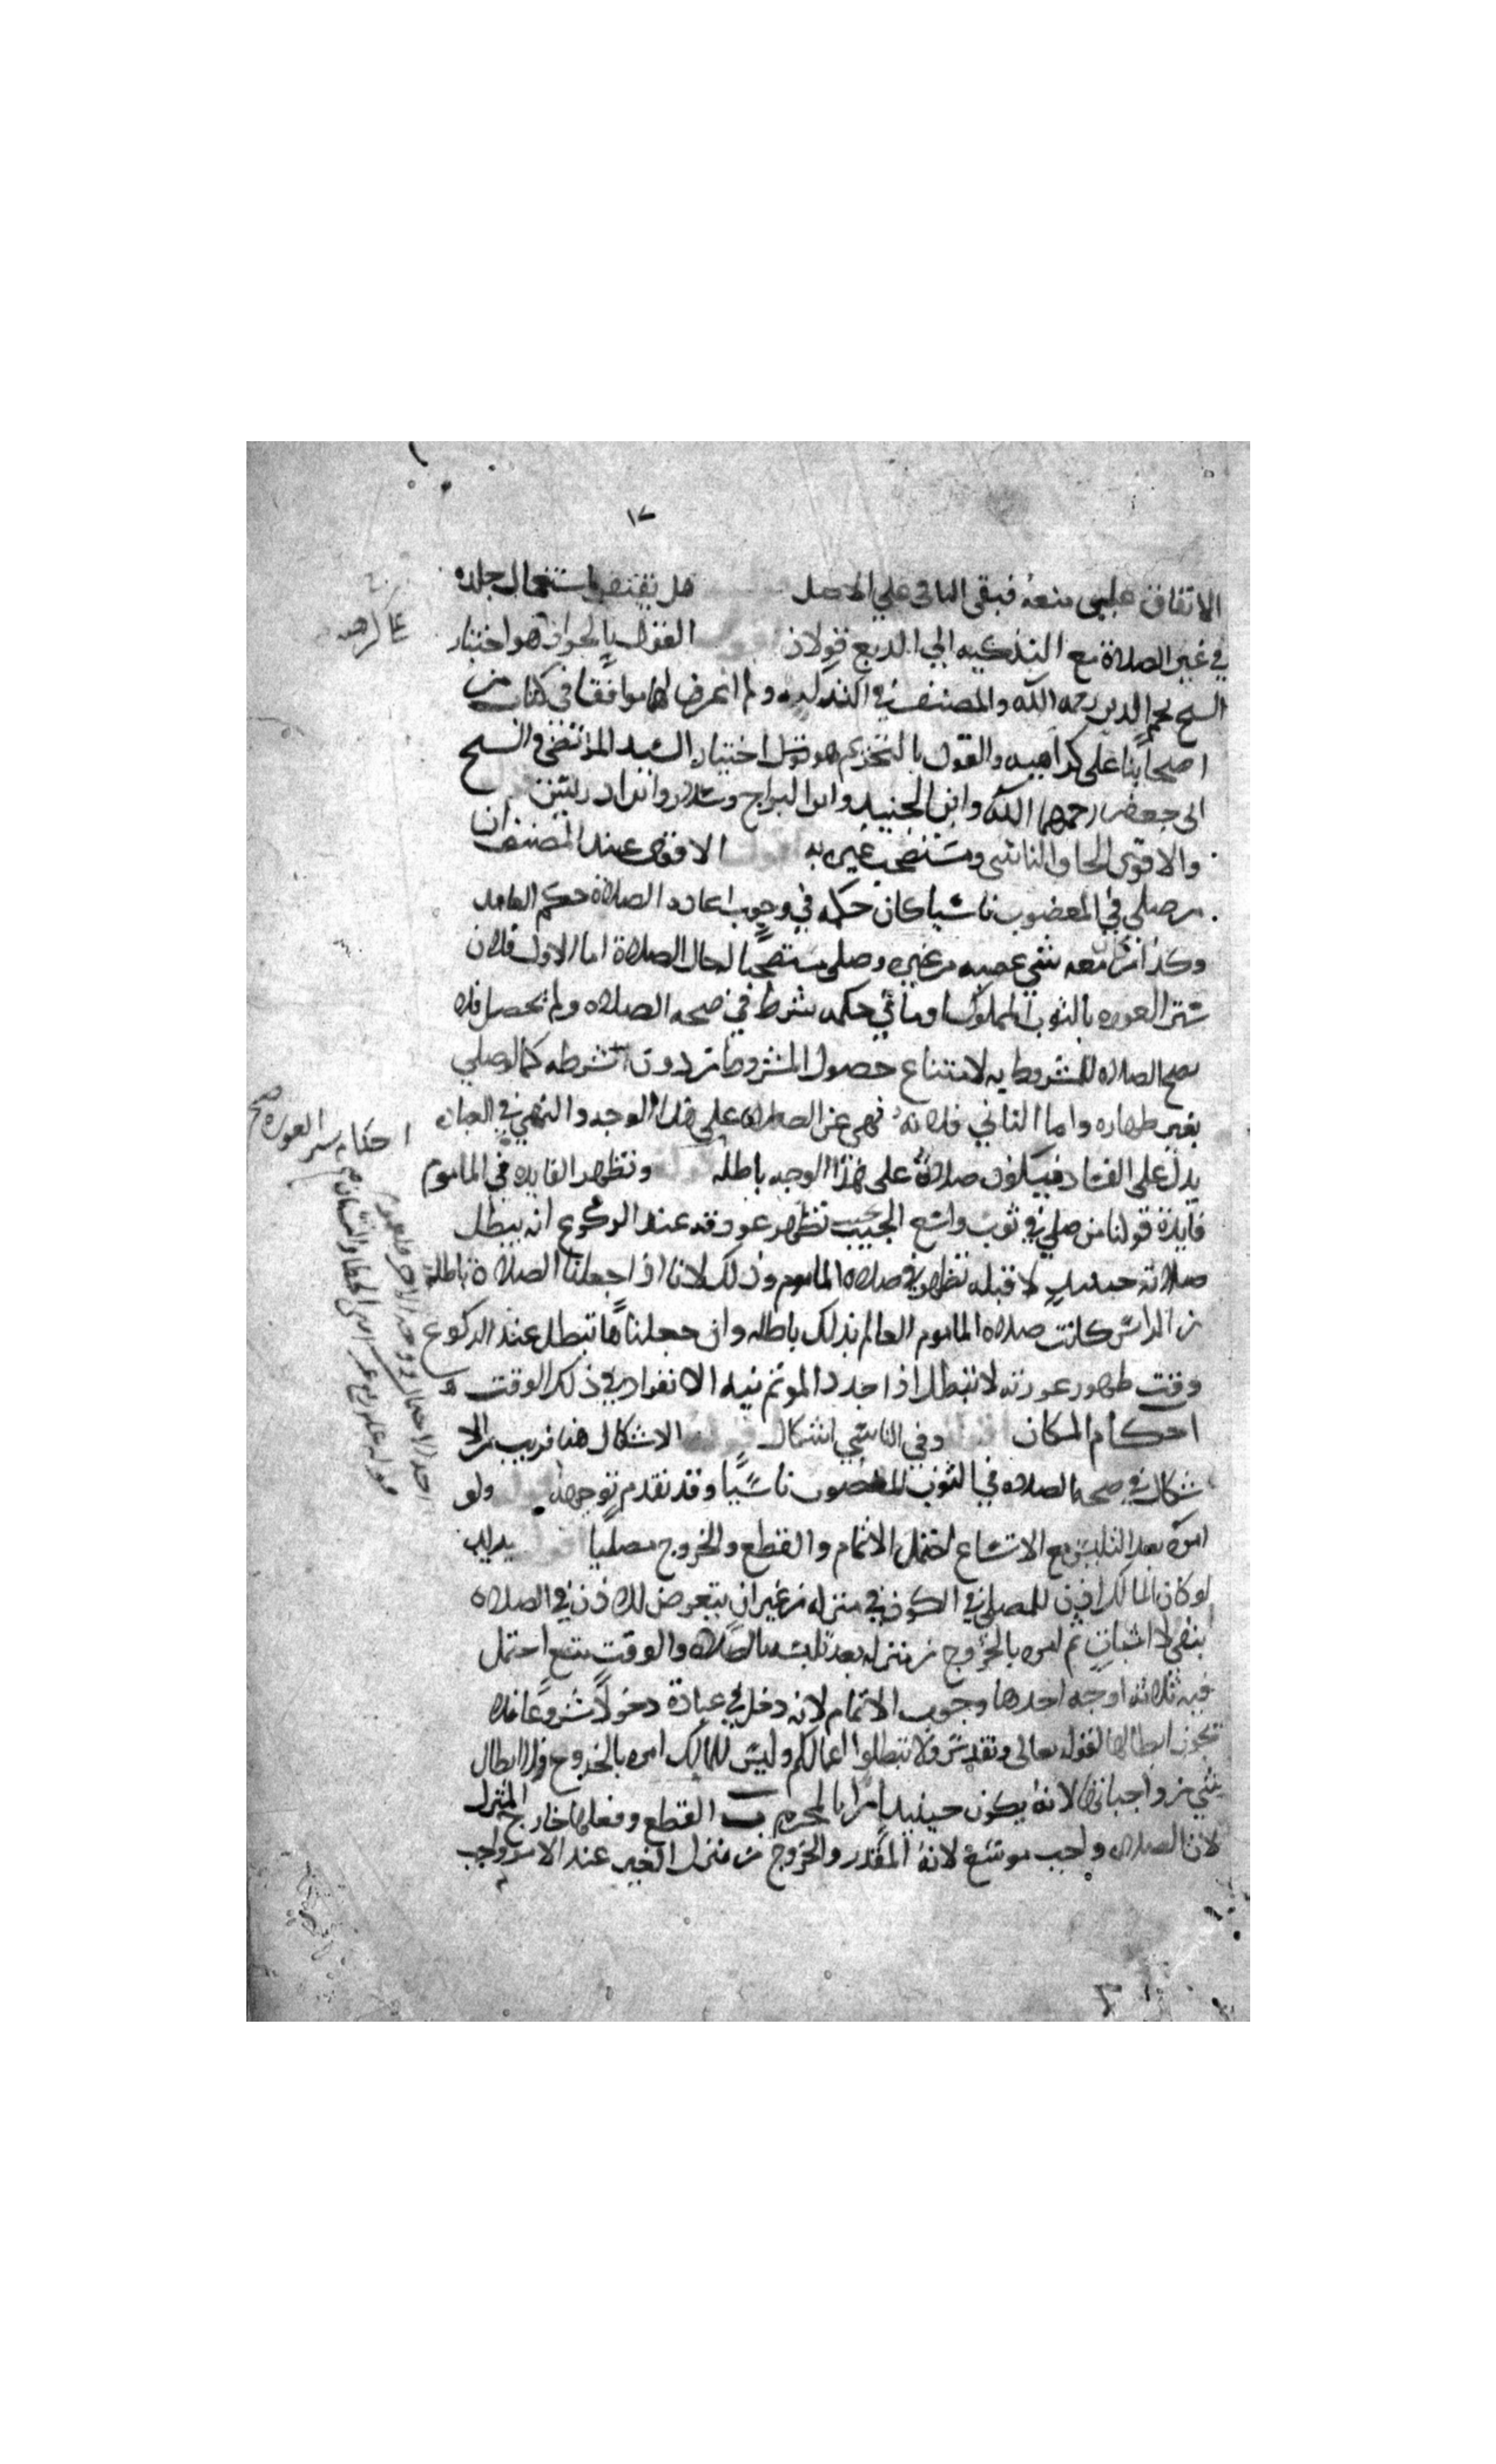 ١٧
الاتفاق علي منعه فبقى الباقى علي الاصل هل يفتقر استعمال جلده
في غير الصلاة مع التذكيه الي الدبغ قولان اقول القول بالجواز هو اختيار
الشيخ نجم الدين رحمه الله والمصنف في التذكره ولم اعرف لهما موافقا في كتاب من
اصحابنا على كراهيه والقول بالتحريم هو قول اختيار السيد المرتضى والشيخ
ابى جعفر رحمهما الله وابن الجنيد وابن البراج وسلار وابن ادريس قوله
والاقوى الحاق الناسى ومستصحب غيره به اقول الاقوى عند المصنف ان
من صلى في المغضوب ناسيا كان حكمه في وجوب اعادة الصلاة حكم العامد
وكذا من كان معه شي غصبه من غيره وصلى مستصحبا له حال الصلاة اما الاول فلان
ستر العوره بالثوب المملوك او ما في حكمه شرط في صحه الصلاه ولم يحصل فلا
تصح الصلاه المشروطه به لامتناع حصول المشروط من دون شرطه كما لو صلى
بغير طهاره واما الثاني فلانه نهى عن الصلاه على هذا الوجه والنهي في العباده
يدل على الفساد فيكون صلاته على هذا الوجه باطله قوله وتظهر الفايده في الماموم
فايدة قولنا من صلى في ثوب واسع الجيب بحيث تظهر عورته عند الركوع انه يبطل
صلاته حينيذ لا قبله تظهر في صلاه الماموم وذلك لانا اذا جعلنا الصلاة باطلة
من الراس كانت صلاه الماموم العالم بذلك باطله وان جعلناها تبطل عند الركوع
وقت ظهور عورته لا تبطل اذا جدد المؤتم نيه الانفراد في ذلك الوقت
احكام المكان قوله وفي الناسي اشكال اقول الاشكال هنا قريب من الا
شكال في صحه الصلاه في الثوب المغصوب ناسيًا وقد تقدم توجيهه قوله ولو
امره بعد التلبس مع الاتساع احتمل الاتمام والقطع والخروج مصليا اقول يريد انه
لو كان المالك اذن للمصلي في الكون في منزله من غير ان يتعرض للاذن في الصلاه
بنفي ولا اثبات ثم امره بالخروج من منزله بعد تلبسه بالصلاه والوقت متسع احتمل
فيه ثلاثه اوجه احدها وجوب الاتمام لانه دخل في عبادة دخولًا مشروعًا فلا
يجوز ابطالها لقوله تعالى وتقدس ولا تبطلوا اعمالكم وليس للمالك امره بالخروج ولا ابطال
شي من واجباتها لانه يكون حينيذ امرا بالمحرم ب القطع وفعلها خارج المنزل
لان الصلاه واجب موسع لانه المقدر والخروج من منزل الغير عند الامر واجب